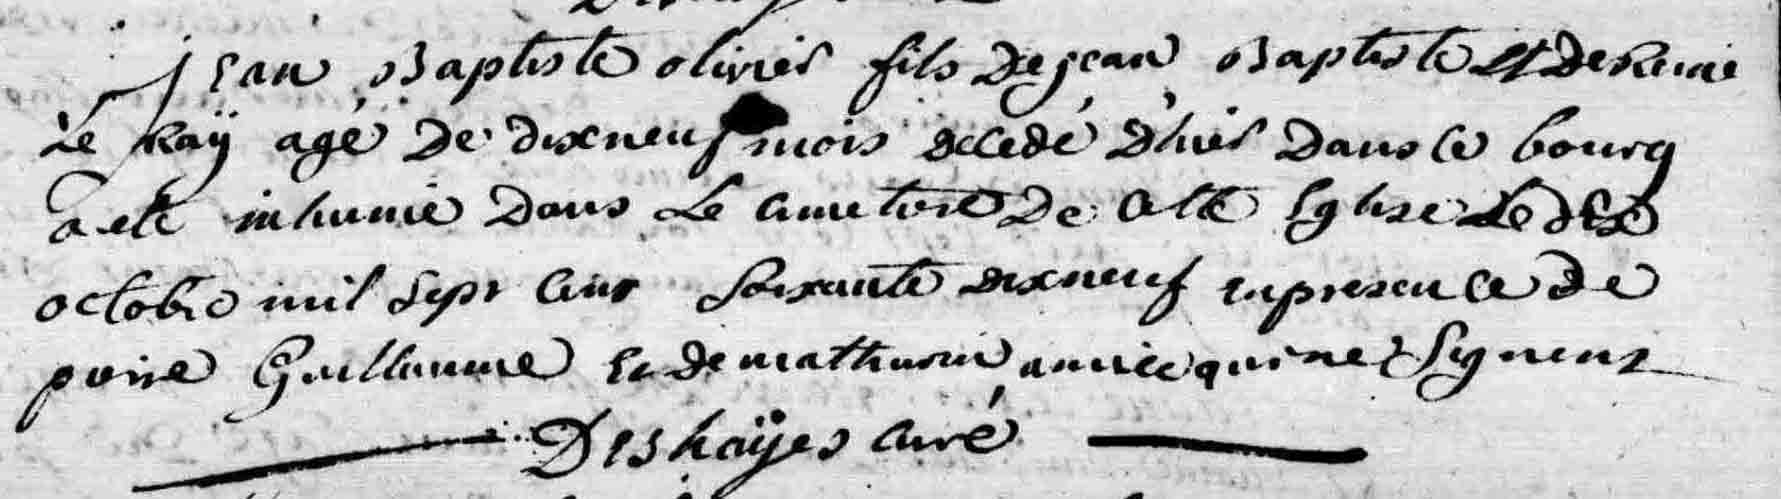 jean Baptiste olivier fils De jean Baptiste et De Renee
Le Raÿ agé De dixneuf mois decedé d'hier Dans ce bourg
a eté inhumé Dans Le cimetiere De cette Eglise Le dix
octobre mil sept cens soixante dixneuf en presence de
pierre Guillaume et de mathurin qui ne signent
Deshaÿes curé